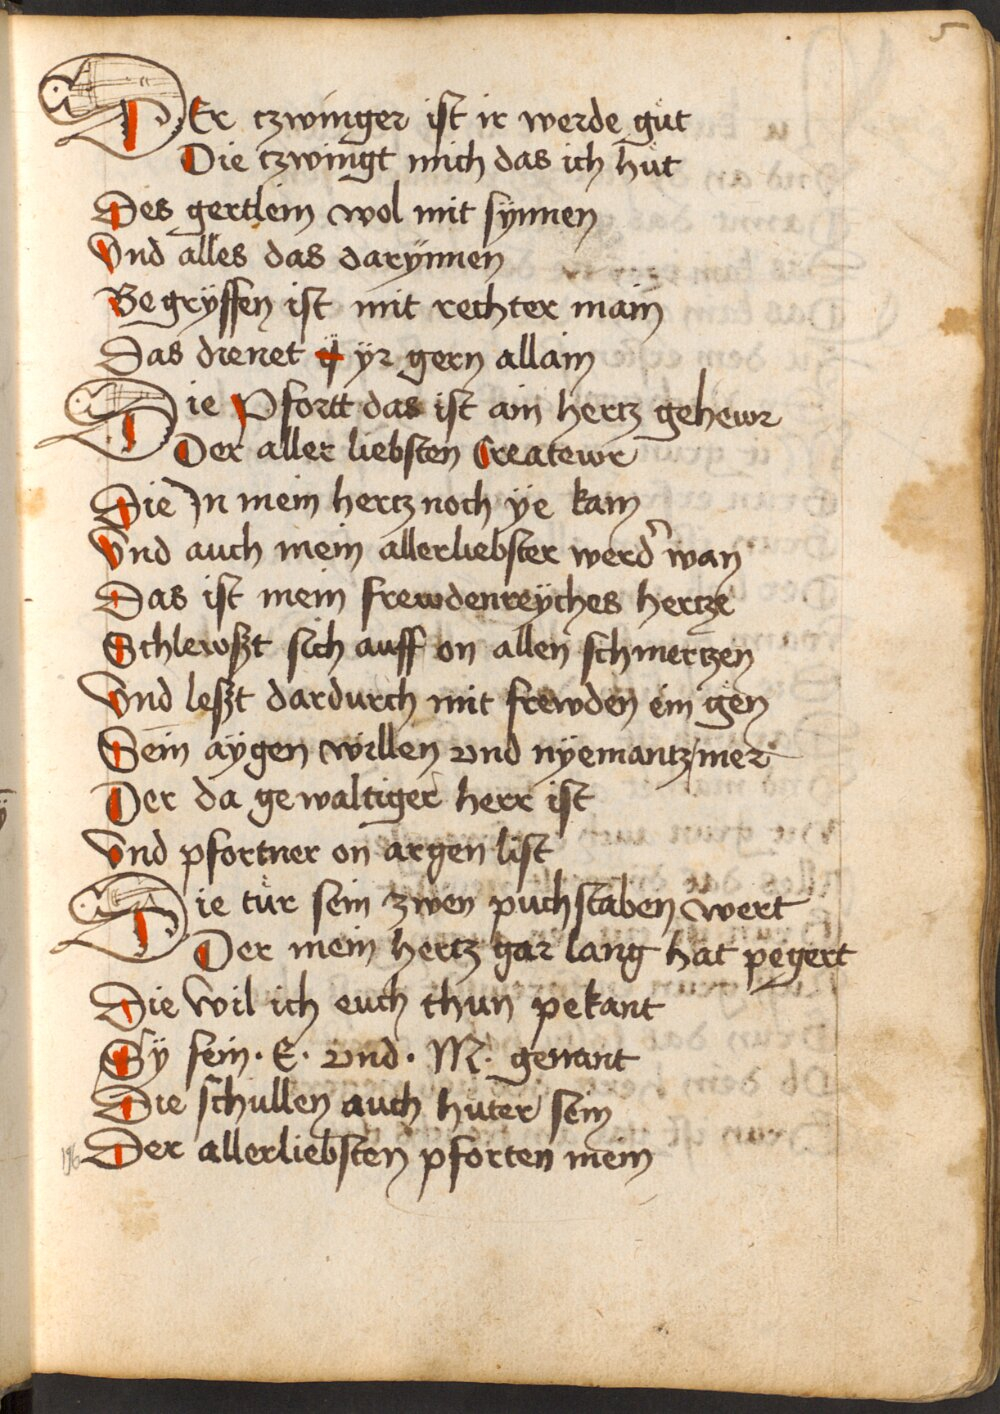 5
DEr czwinger ist ir werde gůt
Die czwingt mich das ich hůt
Des gertlein wol mit synnen
Vnd alles das darÿnnen
Begrÿffen ist mit rechter main
Das dienet ÿr gern allain
Die Pfortt das ist ain hertz gehewr
Der aller liebsten Createwr
Die In mein hertz noch ÿe kam
Vnd auch mein allerliebster werd' wan
Das ist mein frewdenreÿches hertze
Schlewszt sich auff on allen schmertzen
Vnd leszt dardurch mit frewden ein gen
Sein aÿgen willen vnd nÿemantz mer
Der da gewaltiger herr ist
Vnd pfortner on argen list
Die tůr sein zwen puchstaben wert
Der mein hertz gar lang hat pegert
Die wil ich euch thun pekant
Sÿ sein · E · vnd · M · genant
Die schullen auch hůter sein
Der allerliebsten pforten mein